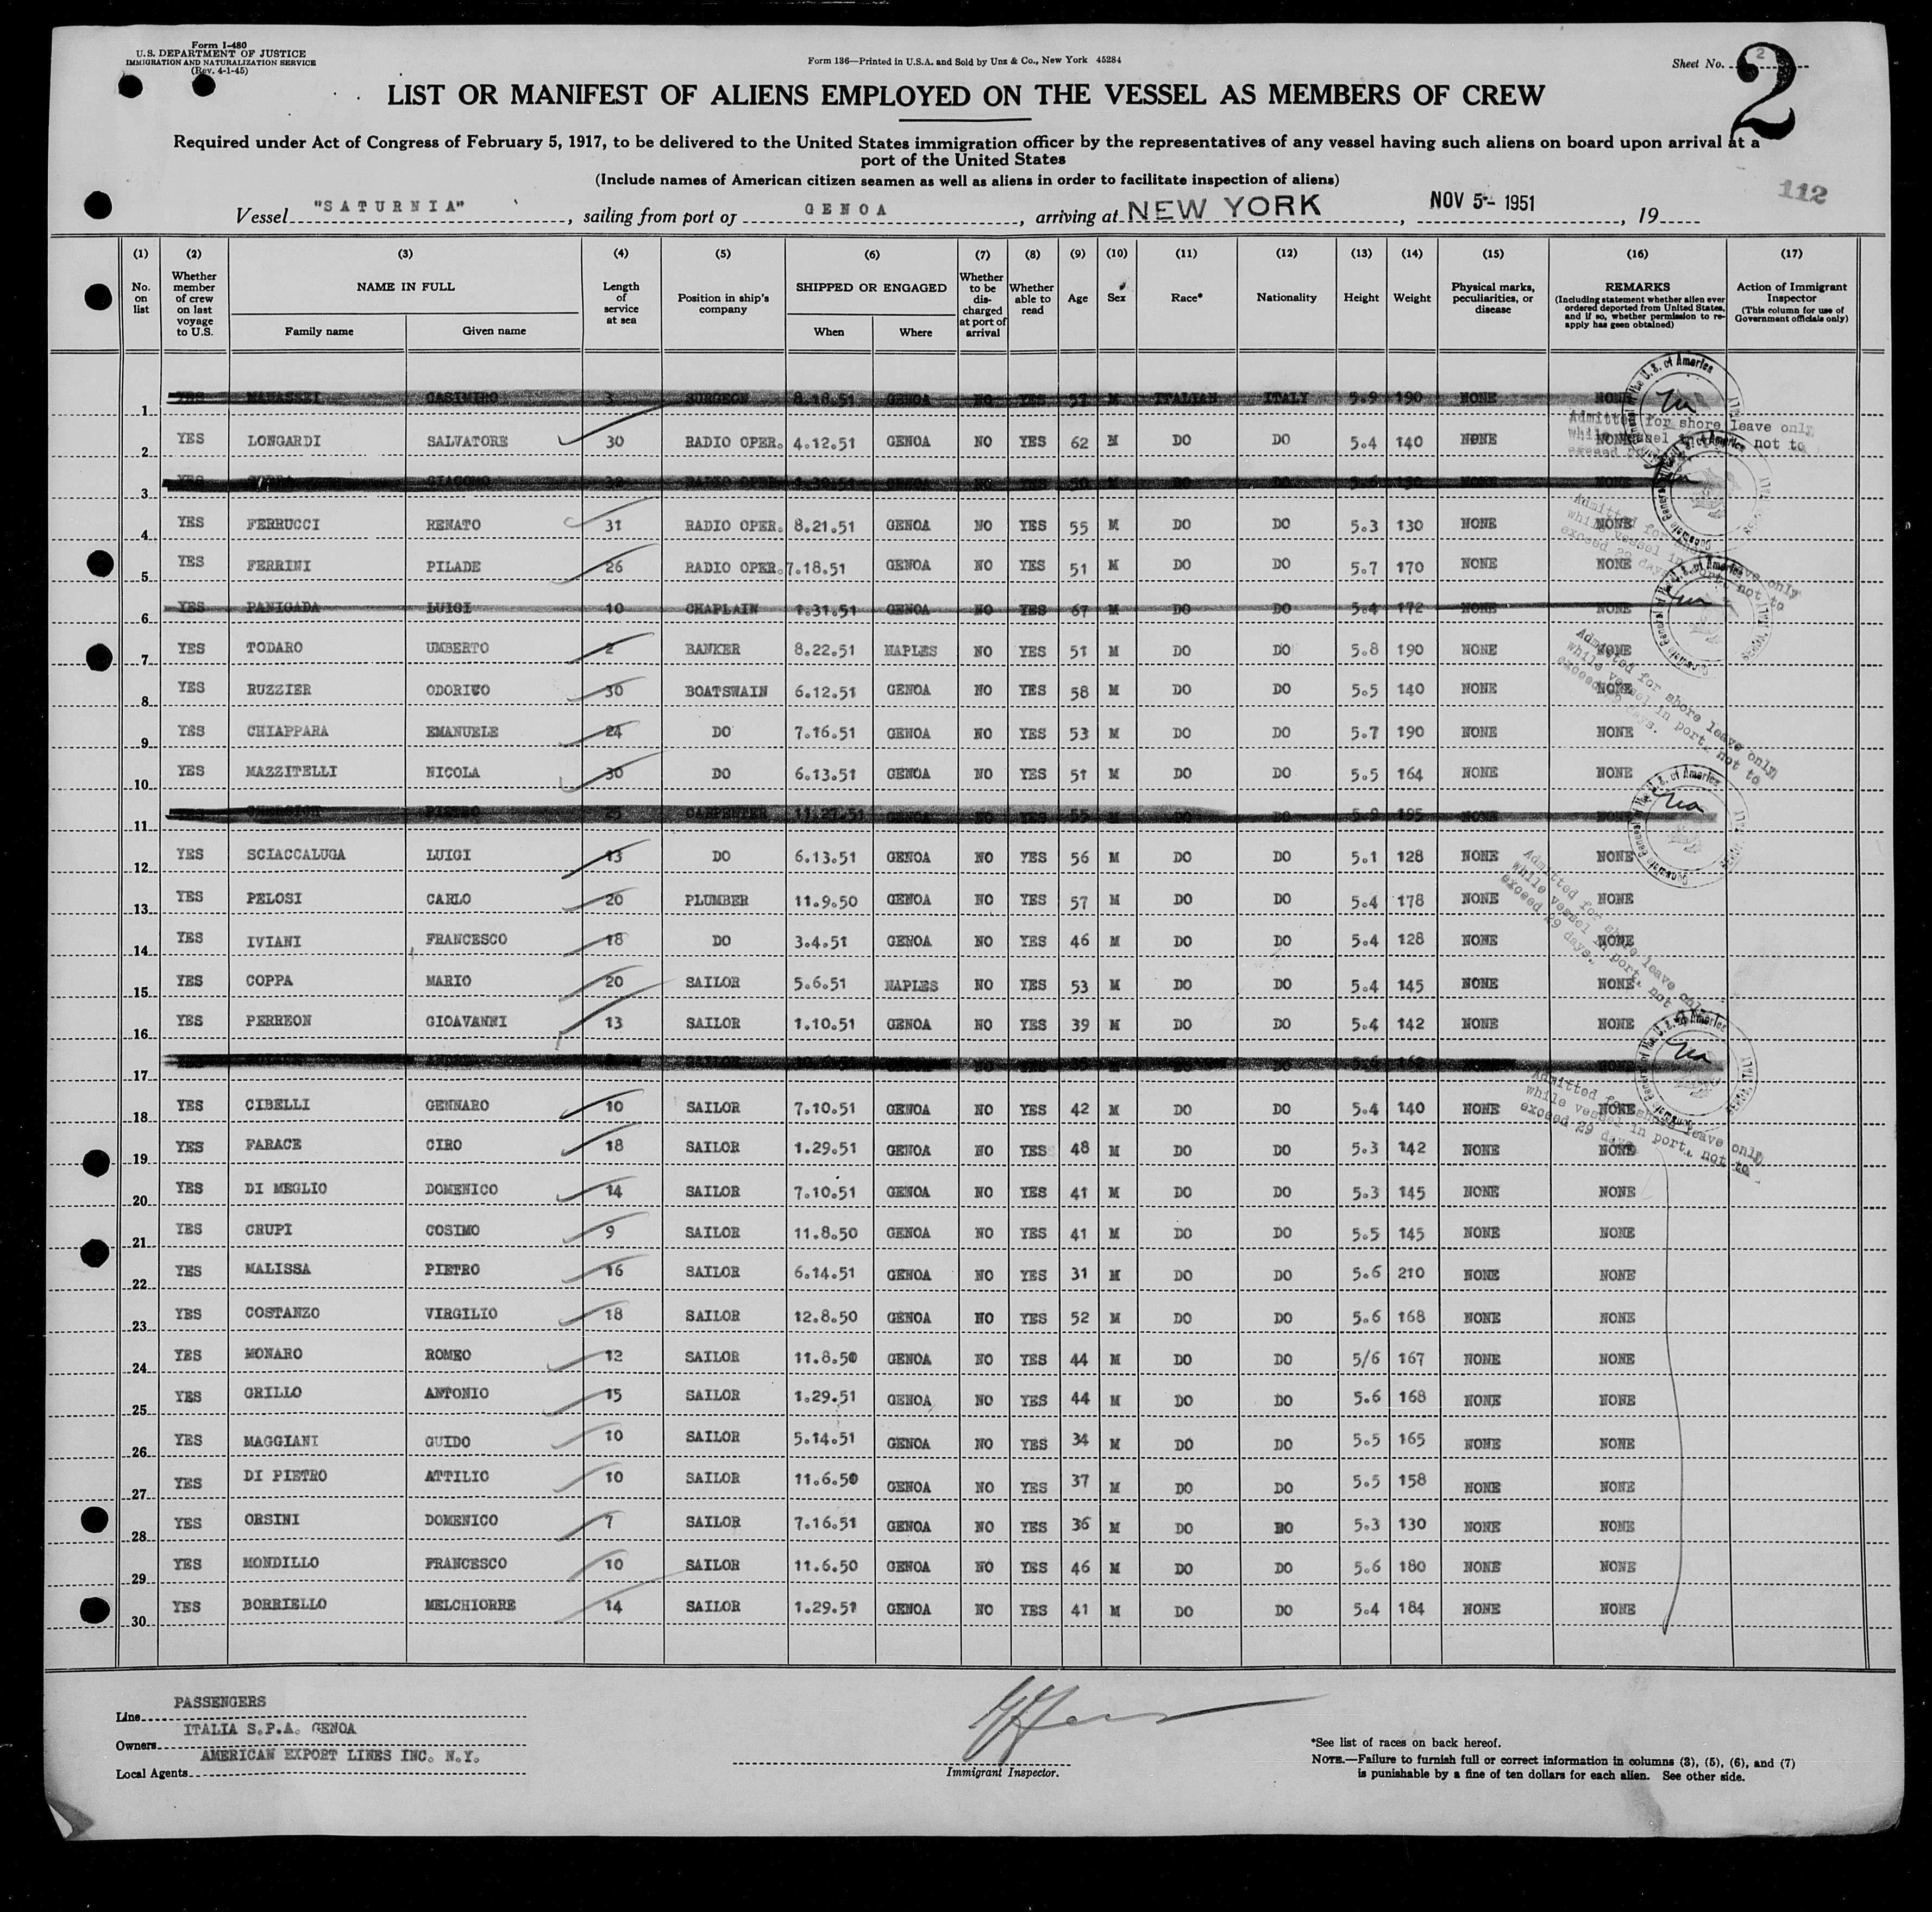 Form I-480
U.S. DEPARTMENT OF JUSTICE
IMMIGRATION AND NATURALIZATION SERVICE
(Rev. 4-1-45)
Form 136—Printed in U.S.A. and Sold by Unz & Co., New York 45284
Sheet No. 2
2
LIST OR MANIFEST OF ALIENS EMPLOYED ON THE VESSEL AS MEMBERS OF CREW
Required under Act of Congress of February 5, 1917, to be delivered to the United States immigration officer by the representatives of any vessel having such aliens on board upon arrival at a
port of the United States
(Include names of American citizen seamen as well as aliens in order to facilitate inspection of aliens)
112
Vessel "SATURNIA", sailing from port of GENOA, arriving at NEW YORK, NOV 5- 1951, 19
(1) (2) (3) (4) (5) (6) (7) (8) (9) (10) (11) (12) (13) (14) (15) (16) (17)
No. on list
Whether member of crew on last voyage to U.S.
NAME IN FULL
Family name
Given name
Length of service at sea
Position in ship's company
SHIPPED OR ENGAGED
When
Where
Whether to be discharged at port of arrival
Whether able to read
Age
Sex
Race*
Nationality
Height
Weight
Physical marks, peculiarities, or disease
REMARKS
(Including statement whether alien ever ordered deported from United States, and if so, whether permission to re-apply has geen obtained)
Action of Immigrant Inspector
(This column for use of Government officials only)
1 YES MANASSEI CASIMIRO 3 SURGEON 8.18.51 GENOA NO YES 57 M ITALIAN ITALY 5.9 190 NONE NONE
2 YES LONGARDI SALVATORE 30 RADIO OPER. 4.12.51 GENOA NO YES 62 M DO DO 5.4 140 NONE NONE
3 YES GIACOMO RADIO OPER GENOA NO YES M DO DO NONE NONE
4 YES FERRUCCI RENATO 31 RADIO OPER. 8.21.51 GENOA NO YES 55 M DO DO 5.3 130 NONE NONE
5 YES FERRINI PILADE 26 RADIO OPER. 7.18.51 GENOA NO YES 51 M DO DO 5.7 170 NONE NONE
6 YES PANIGADA LUIGI 10 CHAPLAIN 1.31.51 GENOA NO YES 67 M DO DO 5.4 172 NONE NONE
7 YES TODARO UMBERTO 2 BANKER 8.22.51 NAPLES NO YES 51 M DO DO 5.8 190 NONE NONE
8 YES RUZZIER ODORICO 30 BOATSWAIN 6.12.51 GENOA NO YES 58 M DO DO 5.5 140 NONE NONE
9 YES CHIAPPARA EMANUELE 24 DO 7.16.51 GENOA NO YES 53 M DO DO 5.7 190 NONE NONE
10 YES MAZZITELLI NICOLA 30 DO 6.13.51 GENOA NO YES 51 M DO DO 5.5 164 NONE NONE
11 PIETRO 25 CARPENTER 11.27.51 GENOA NO YES 55 M DO DO 5.9 195 NONE NONE
12 YES SCIACCALUGA LUIGI 13 DO 6.13.51 GENOA NO YES 56 M DO DO 5.1 128 NONE NONE
13 YES PELOSI CARLO 20 PLUMBER 11.9.50 GENOA NO YES 57 M DO DO 5.4 178 NONE NONE
14 YES IVIANI FRANCESCO 18 DO 3.4.51 GENOA NO YES 46 M DO DO 5.4 128 NONE NONE
15 YES COPPA MARIO 20 SAILOR 5.6.51 NAPLES NO YES 53 M DO DO 5.4 145 NONE NONE
16 YES PERREON GIOAVANNI 13 SAILOR 1.10.51 GENOA NO YES 39 M DO DO 5.4 142 NONE NONE
17 SAILOR GENOA NO YES M DO NONE
18 YES CIBELLI GENNARO 10 SAILOR 7.10.51 GENOA NO YES 42 M DO DO 5.4 140 NONE NONE
19 YES FARACE CIRO 18 SAILOR 1.29.51 GENOA NO YES 48 M DO DO 5.3 142 NONE NONE
20 YES DI MEGLIO DOMENICO 14 SAILOR 7.10.51 GENOA NO YES 41 M DO DO 5.3 145 NONE NONE
21 YES CRUPI COSIMO 9 SAILOR 11.8.50 GENOA NO YES 41 M DO DO 5.5 145 NONE NONE
22 YES MALISSA PIETRO 16 SAILOR 6.14.51 GENOA NO YES 31 M DO DO 5.6 210 NONE NONE
23 YES COSTANZO VIRGILIO 18 SAILOR 12.8.50 GENOA NO YES 52 M DO DO 5.6 168 NONE NONE
24 YES MONARO ROMEO 12 SAILOR 11.8.50 GENOA NO YES 44 M DO DO 5/6 167 NONE NONE
25 YES GRILLO ANTONIO 15 SAILOR 1.29.51 GENOA NO YES 44 M DO DO 5.6 168 NONE NONE
26 YES MAGGIANI GUIDO 10 SAILOR 5.14.51 GENOA NO YES 34 M DO DO 5.5 165 NONE NONE
27 YES DI PIETRO ATTILIO 10 SAILOR 11.6.50 GENOA NO YES 37 M DO DO 5.5 158 NONE NONE
28 YES ORSINI DOMENICO 7 SAILOR 7.16.51 GENOA NO YES 36 M DO DO 5.3 130 NONE NONE
29 YES MONDILLO FRANCESCO 10 SAILOR 11.6.50 GENOA NO YES 46 M DO DO 5.6 180 NONE NONE
30 YES BORRIELLO MELCHIORRE 14 SAILOR 1.29.51 GENOA NO YES 41 M DO DO 5.4 184 NONE NONE
Admitted for shore leave only
while vessel in port, not to
exceed 29 days.
Admitted for shore leave only
while vessel in port, not to
exceed 29 days.
Admitted for shore leave only
while vessel in port, not to
exceed 29 days.
Admitted for shore leave only
while vessel in port, not to
exceed 29 days.
Admitted for shore leave only
while vessel in port, not to
exceed 29 days.
Line PASSENGERS
Owners ITALIA S.P.A. GENOA
Local Agents AMERICAN EXPORT LINES INC. N.Y.
Immigrant Inspector.
*See list of races on back hereof.
NOTE.—Failure to furnish full or correct information in columns (3), (5), (6), and (7)
is punishable by a fine of ten dollars for each alien. See other side.